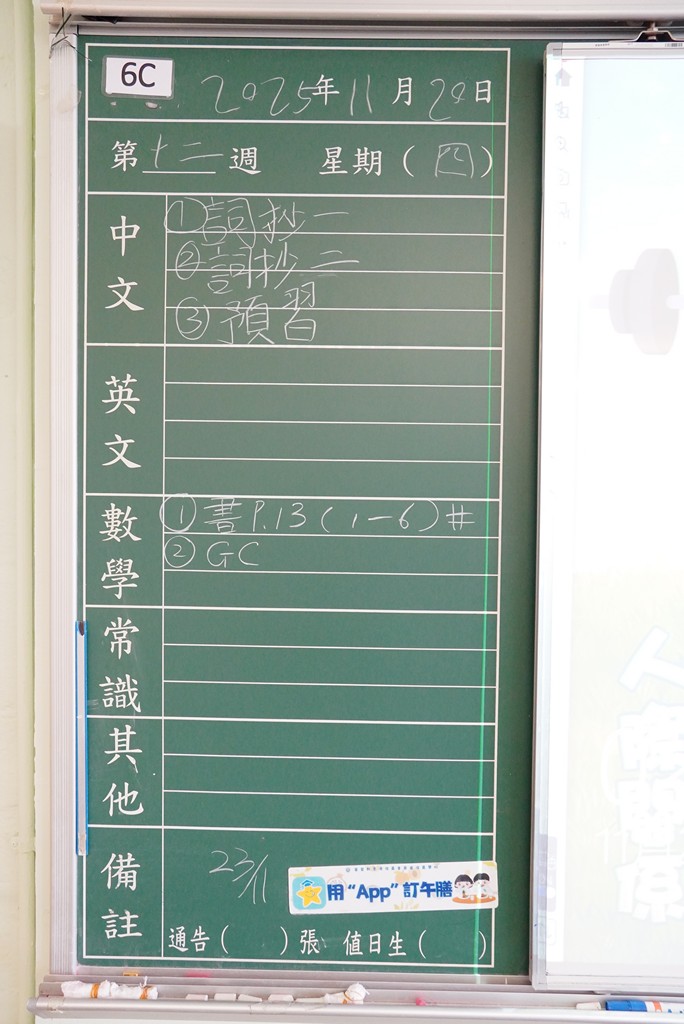 6C
2025年11月20日
第十二週 星期(四)
中文
①詞抄一
②詞抄二
③預習
英文
數學
①書P.13(1-6)#
②GC
常識
其他
備註
23/11
用“App”訂午膳
通告( )張 值日生( )
人際關係